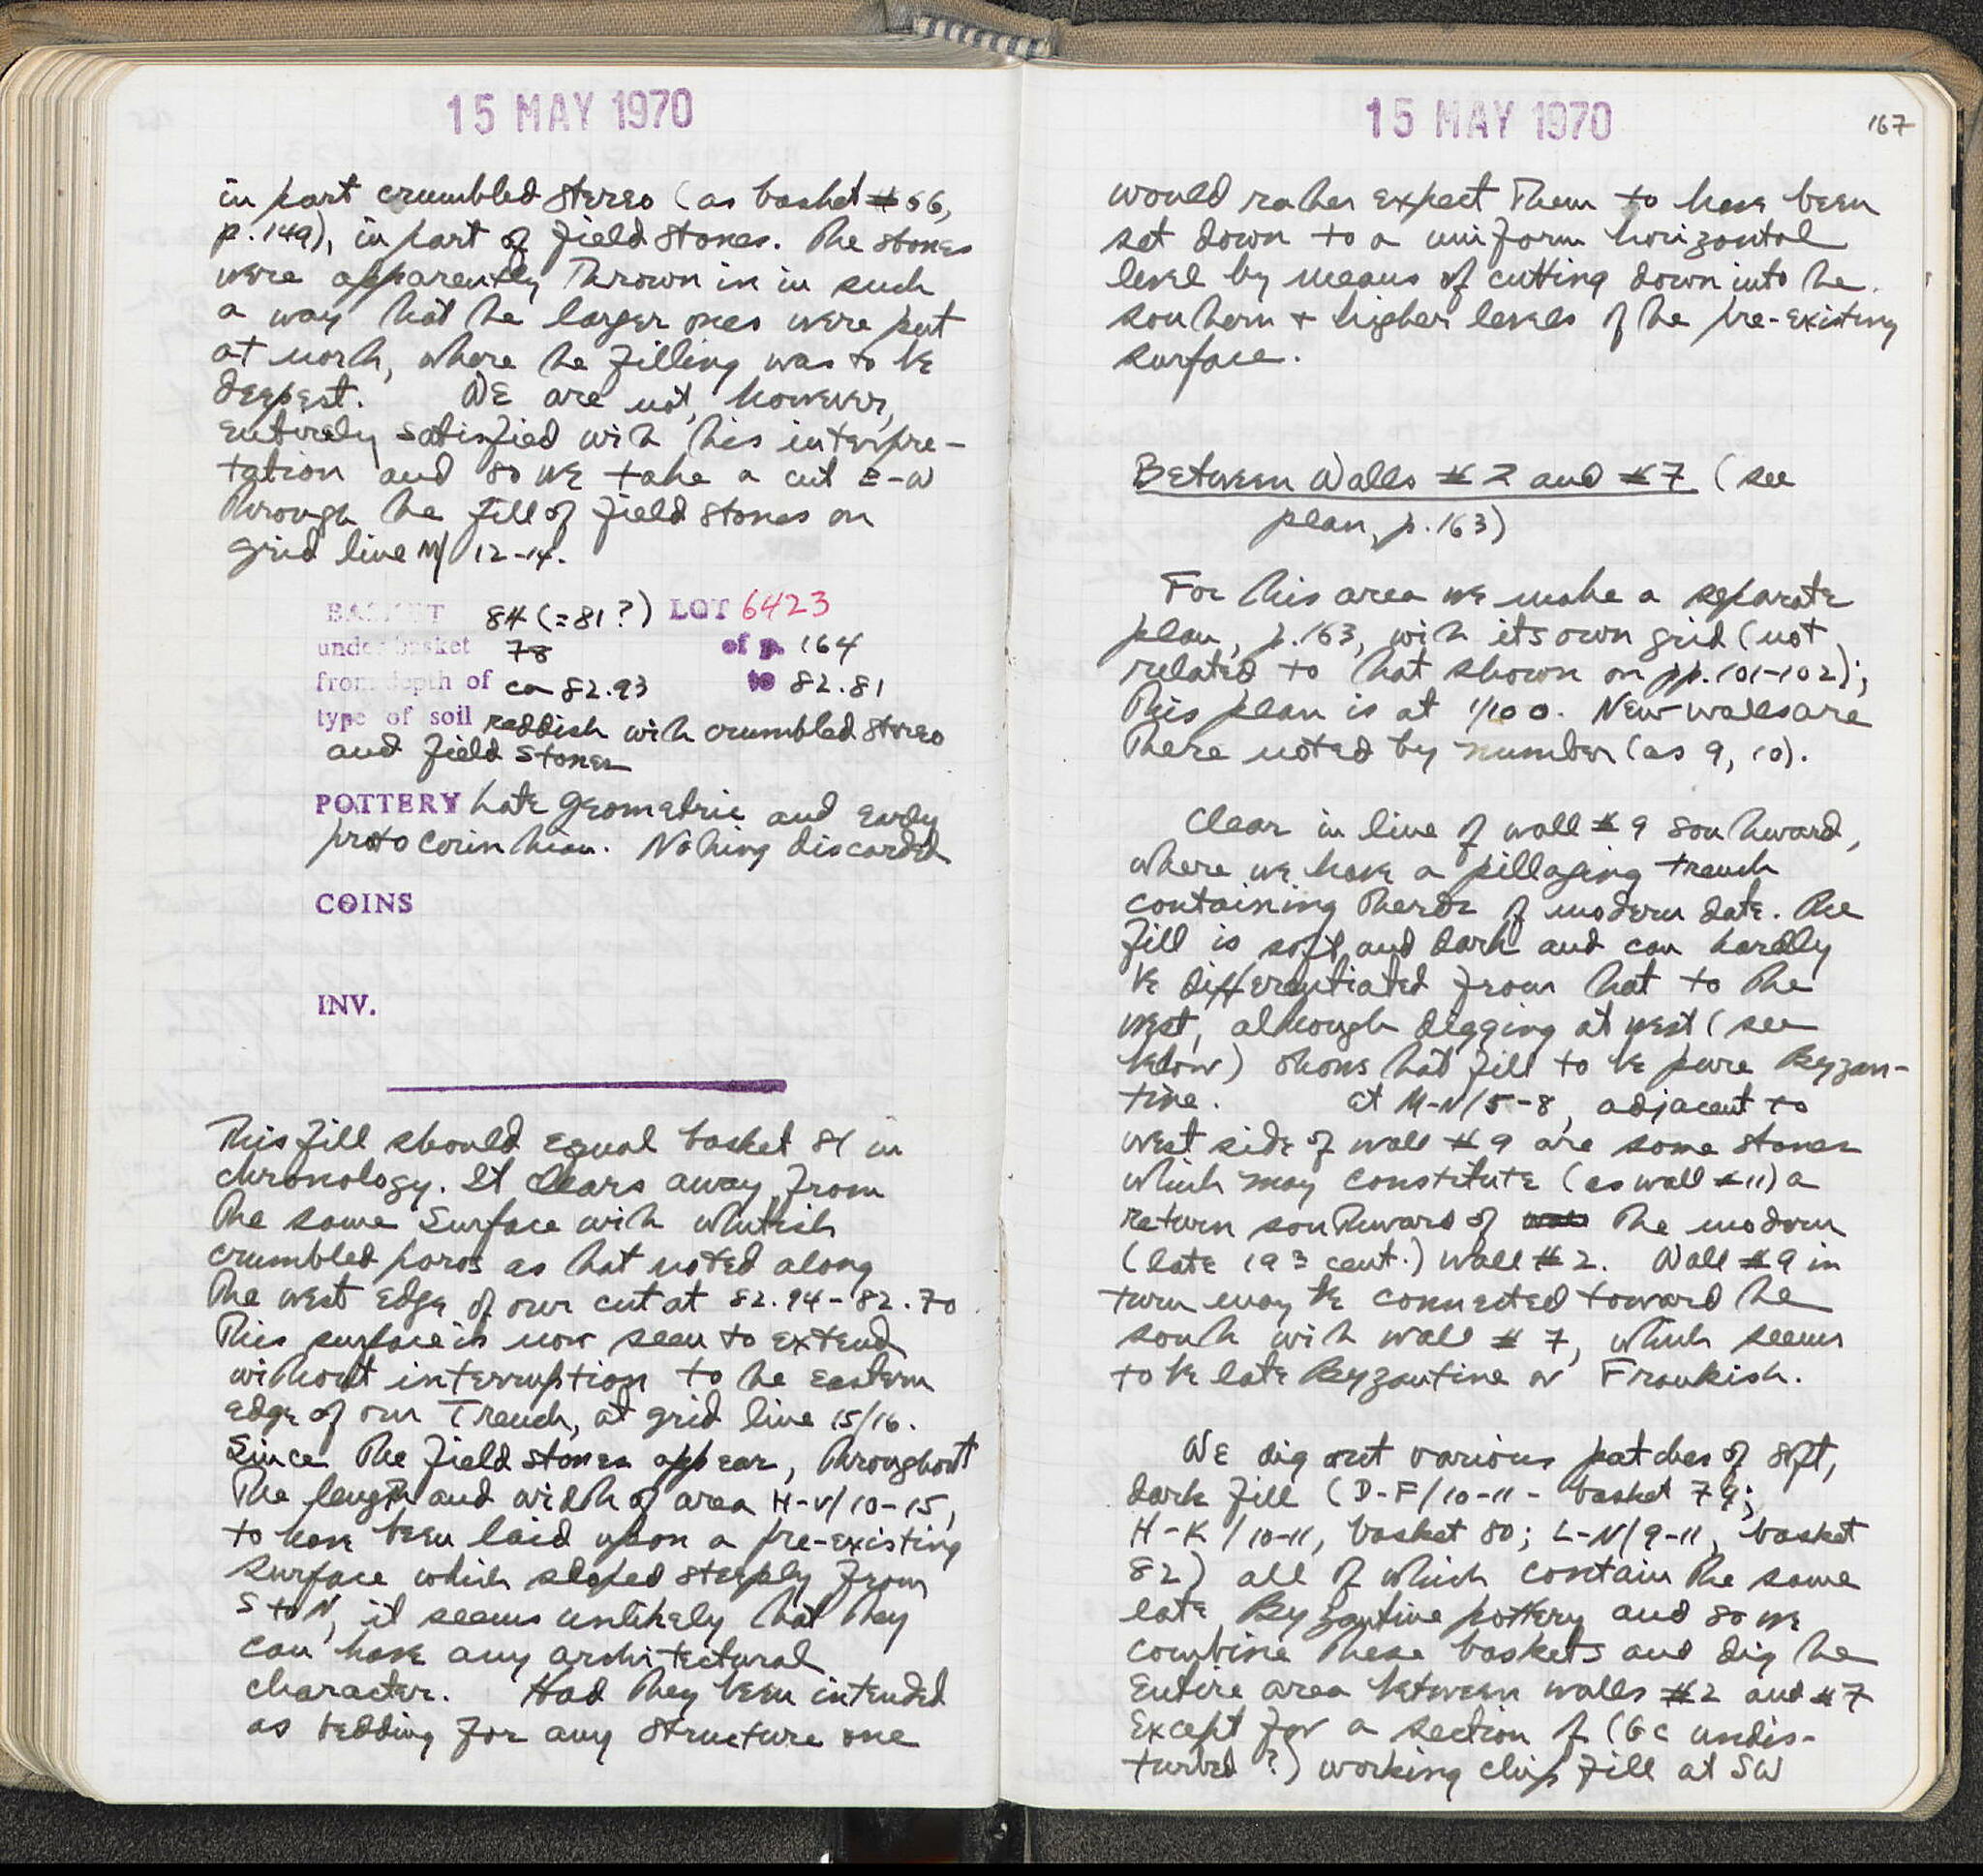 15 MAY 1970
in part crumbled stereo (as basket #56,
p. 149), in part of field stones. The stones
were apparently thrown in in such
a way that the larger ones were put
at north, where the filling was to be
deepest. We are not, however,
entirely satisfied with this interpre-
tation and so we take a cut E-W
through the fill of field stones on
grid line M/ 12-14.
BASKET 84 (=81?) LOT 6423
under basket 78 of p. 164
from depth of ca 82.93 to 82.81
type of soil reddish with crumbled stereo
and field stones
POTTERY Late geometric and early
proto corinthian. Nothing discarded
COINS
INV.
This fill should equal basket 81 in
chronology. It clears away from
the same surface with whitish
crumbled poros as that noted along
the west edge of our cut at 82.94-82.70
This surface is now seen to extend
without interruption to the eastern
edge of our trench, at grid line 15/16.
Since the field stones appear, throughout
the length and width of area H-V/10-15,
to have been laid upon a pre-existing
surface which sloped steeply from
S to N, it seems unlikely that they
can have any architectural
character. Had they been intended
as bedding for any structure one
15 MAY 1970
167
would rather expect them to have been
set down to a uniform horizontal
level by means of cutting down into the
southern + higher levels of the pre-existing
surface.
Between Walls #2 and #7 (see
plan, p. 163)
For this area we make a separate
plan, p. 163, with its own grid (not
related to that shown on pp. 101-102);
This plan is at 1/100. New walls are
there noted by number (as 9, 10).
Clear in line of wall #9 southward,
where we have a pillaging trench
containing sherds of modern date. The
fill is soft and dark and can hardly
be differentiated from that to the
west, although digging at west (see
below) shows that fill to be pure Byzan-
tine. at M-N/5-8, adjacent to
west side of wall #9 are some stones
which may constitute (as wall #11) a
return southward of the modern
(late 19 cent.) wall #2. Wall #9 in
turn may be connected toward the
south with wall #7, which seems
to be late Byzantine or Frankish.
We dig out various patches of soft,
dark fill (D-F/10-11 - basket 79;
H-K/10-11, basket 80; L-N/9-11, basket
82) all of which contain the same
late Byzantine pottery and so we
combine these baskets and dig the
entire area between walls #2 and #7
except for a section of (Gc undis-
turbed?) working chip fill at SW